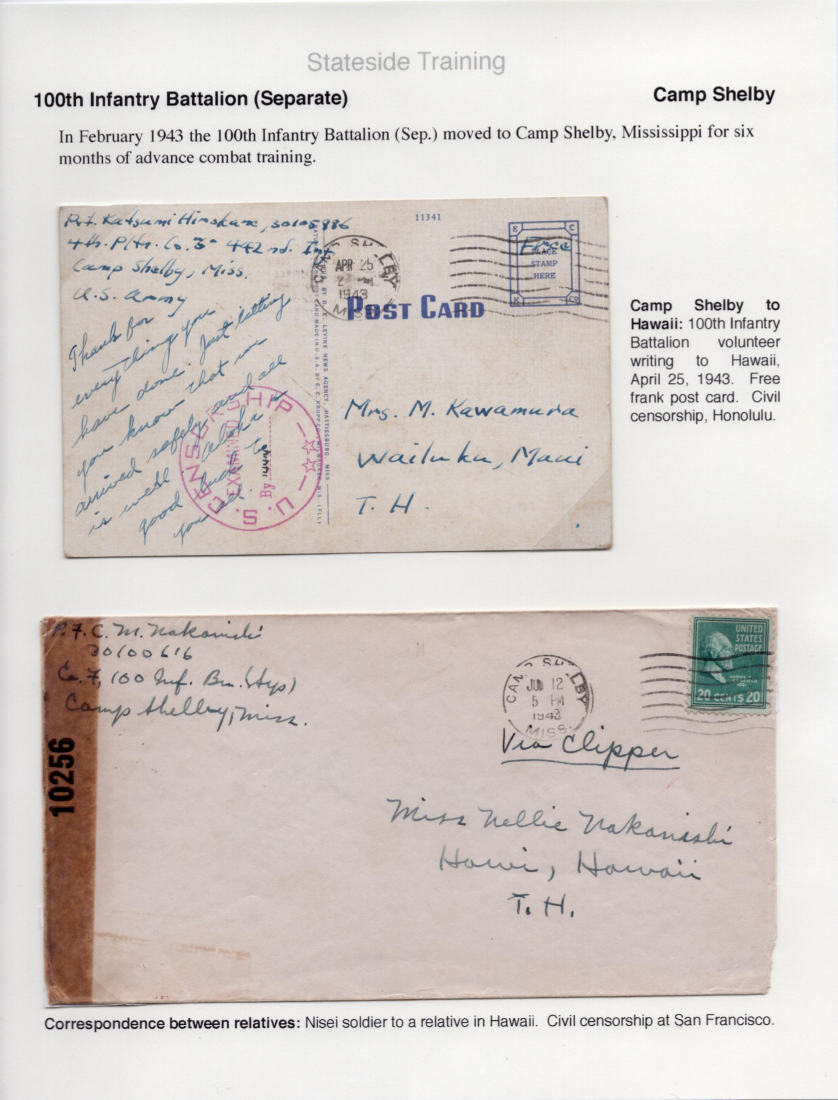 Stateside Training
100th Infantry Battalion (Separate)
Camp Shelby
In February 1943 the 100th Infantry Battalion (Sep.) moved to Camp Shelby, Mississippi for six
months of advance combat training.
Pvt. Katsumi 30105886
4th. Pltn. Co. 3- 442nd. Inf
Camp Shelby, Miss.
U.S. Army
Thanks for
everything you
have done. Just letting
you know that we
arrived safely and all
is well. Aloha &
good luck to
you all.
11341
CAMP SHELBY
APR 25
1943
MISS.
Free
PLACE
STAMP
HERE
E C
K Co
POST CARD
U.S. CENSORSHIP
EXAMINED
By
Mrs. M. Kawamura
Wailuku, Maui
T. H.
Camp Shelby to
Hawaii: 100th Infantry
Battalion volunteer
writing to Hawaii,
April 25, 1943. Free
frank post card. Civil
censorship, Honolulu.
P.F.C. M. Nakanishi
30100616
Co. F, 100 Inf. Bn. (Sep)
Camp Shelby, Miss.
10256
CAMP SHELBY
JUN 12
5 PM
1943
MISS.
UNITED
STATES
POSTAGE
20 CENTS 20
Via Clipper
Miss Nellie Nakanishi
Hawi, Hawaii
T. H.
Correspondence between relatives: Nisei soldier to a relative in Hawaii. Civil censorship at San Francisco.